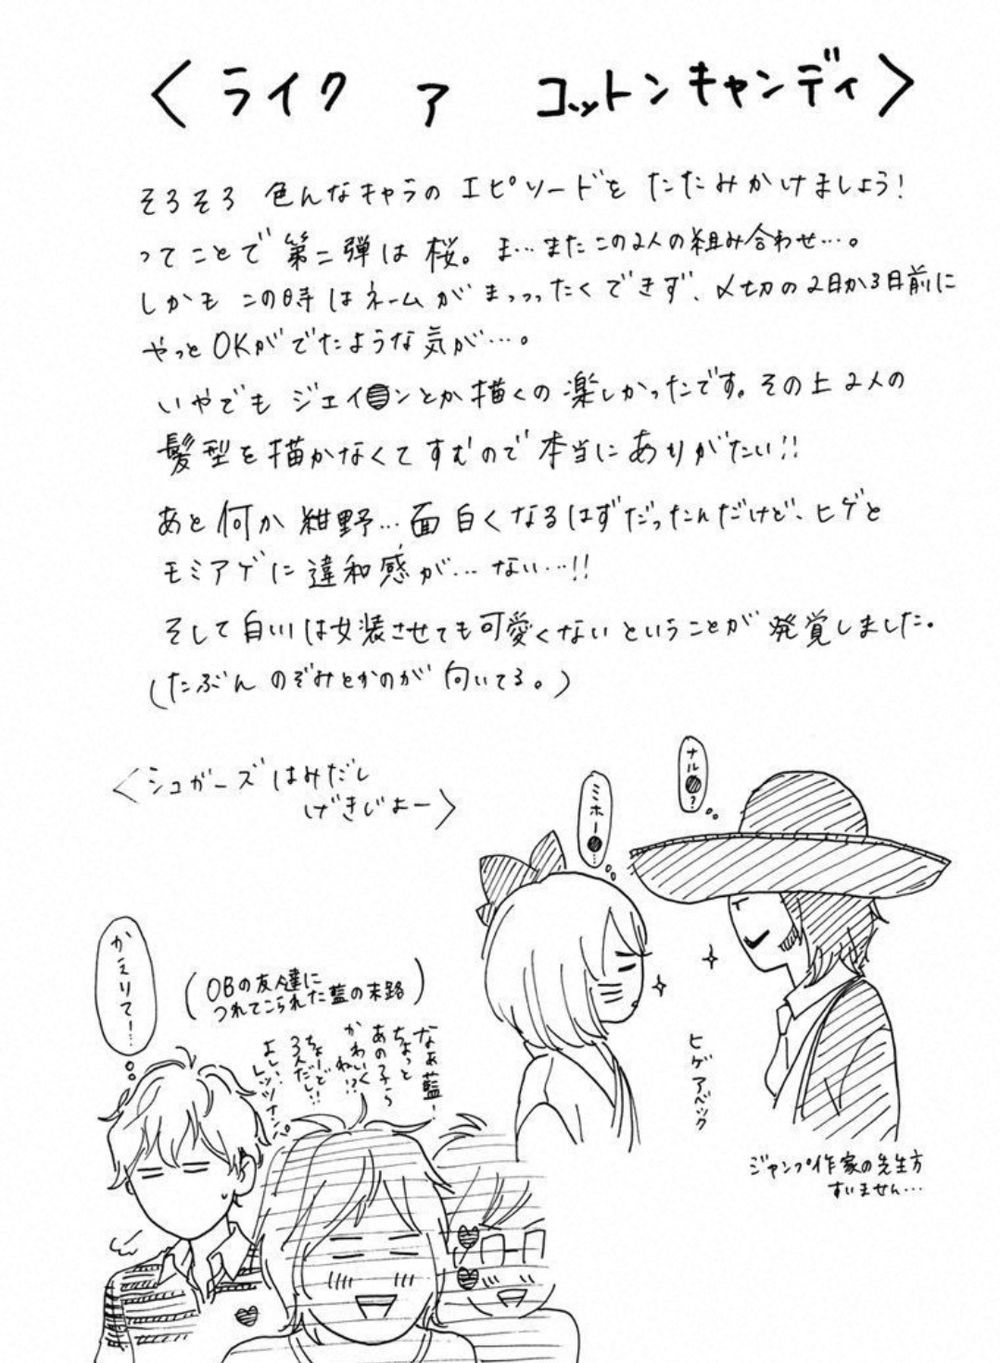 〈ライク ア コットンキャンディ〉
そろそろ 色んなキャラの エピソードを たたみかけましょう!
ってことで 第二弾は 桜。ま…またこの2人の組み合わせ…。
しかも この時はネームが まっっったくできず、〆切の2日か3日前に
やっとOKがでたような気が…。
いやでも ジェイ●ンとか描くの楽しかったです。その上2人の
髪型を描かなくてすむので本当にありがたい!!
あと何か紺野…面白くなるはずだったんだけど、ヒゲと
モミアゲに違和感が…ない…!!
そして白川は女装させても可愛くないということが発覚しました。
(たぶん のぞみとかのが 向いてる。)
〈シュガーズはみだし
げきじょー〉
ナル●?
ミホー●…
ヒゲアベック
ジャンプ作家の先生方
すいません…
かえりて!…
(OBの友人達に
つれてこられた藍の末路)
なぁ藍!
ちょっと
あの子ら
かわいく
ね!?
ちょーど
3人だし!!
よし!
レッツナンパ